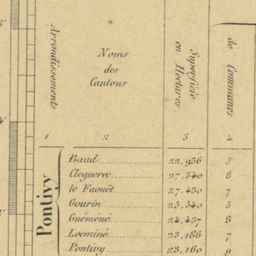 Arrondissements
Noms
des
Cantons
Superficie
en Hectares
de Communes
1 2 3 4
Pontivy
Baud 22,936
Cléguerec 27,540 8
le Faouët 27,450 7
Gourin 25,340 5
Guémené 24,457 8
Locminé 23,188 7
Pontivy 23,160 9